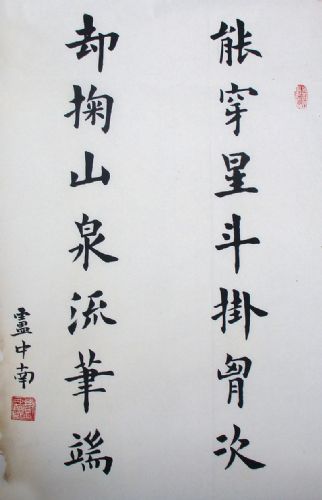 能穿星斗掛胷次
却掬山泉流筆端
盧中南